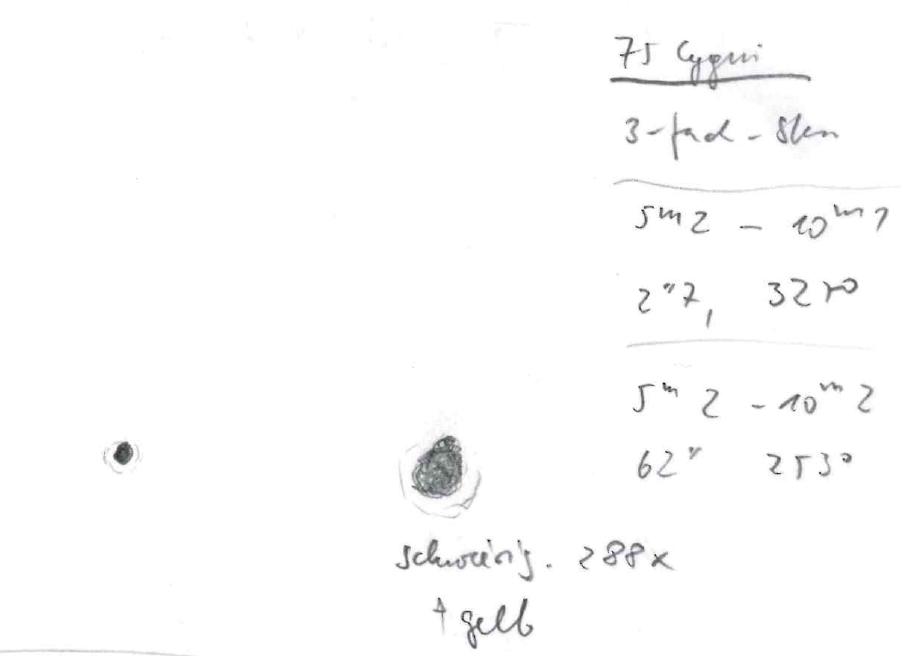 75 Cygni
3-fach-Stern
5ᵐ2 – 10ᵐ1
2"7, 325°
5ᵐ2 – 10ᵐ2
62" 253°
schwierig. 288x
↑ gelb